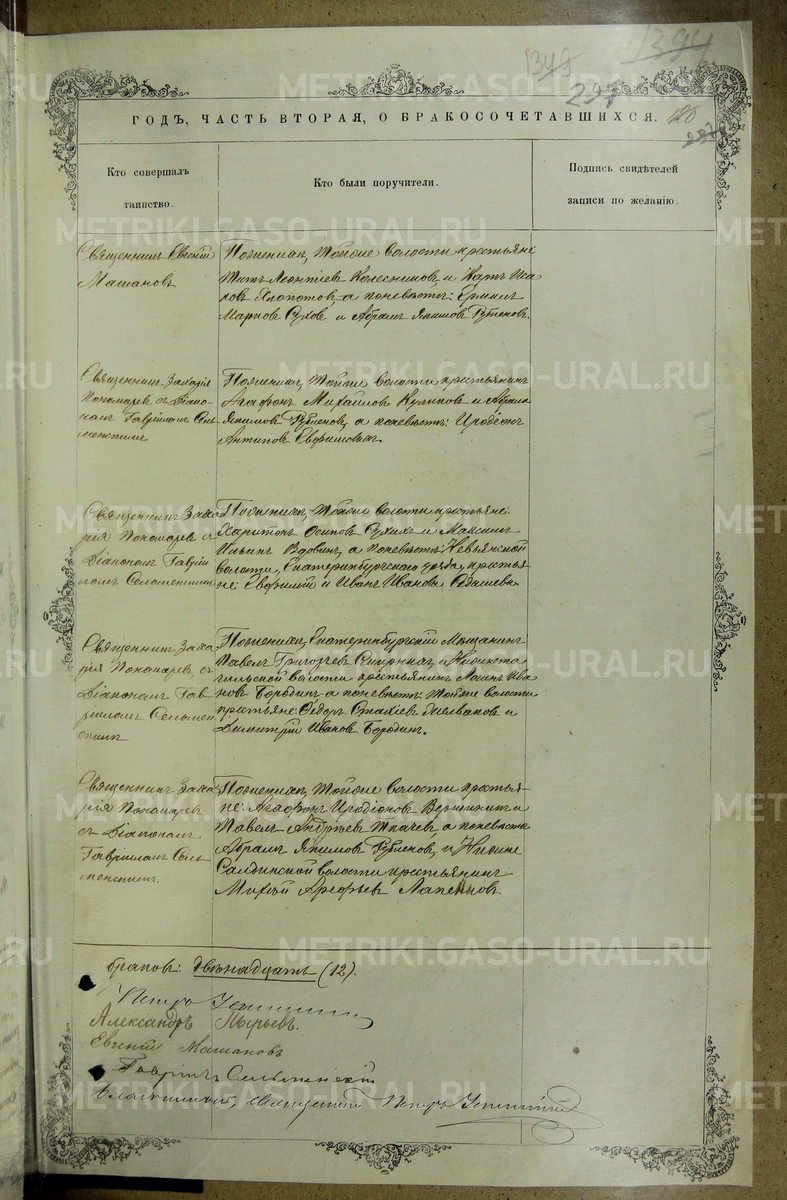 1394
349
297
ГОДЪ, ЧАСТЬ ВТОРАЯ, О БРАКОСОЧЕТАВШИХСЯ.
Кто совершалъ
таинство.
Кто были поручители.
Подпись свидѣтелей
записи по желанію.
Священникъ Евгеній
Машановъ
По женихѣ, тойже волости крестьяне
Титъ Леонтіевъ Колесниковъ, и
Хлопотовъ а по невѣстѣ: Ермилъ
Марковъ Сухов и Абрамъ Якимовъ Рубленовъ.
Священникъ Захарія
Пономаревъ съ Діако-
номъ Гавріиломъ Сель-
менскимъ
По женихѣ, тойже волости крестьянинъ
Агафонъ Михайловъ Куликовъ и Абрамъ
Якимовъ Рубленовъ, а по невѣстѣ: Иродіонъ
Антиповъ
Священникъ Заха-
рія Пономаревъ съ
Діакономъ Гаврiи-
ломъ Сельменскимъ
По женихѣ, тойже волости крестьяне:
Харитонъ Осиповъ Сухихъ и Максимъ
Ильинъ Вдовинъ, а по невѣстѣ: Невьянской
волости, Екатеринбургскаго уѣзда, крестья-
не: и Иванъ Ивановъ
Священникъ Заха-
рія Пономаревъ, съ
Діакономъ Гав-
ріиломъ Сельмен-
скимъ
По женихѣ, Екатеринбургскій мѣщанинъ
Павелъ Григорьевъ и Нижнета-
гильской волости крестьянинъ Ива-
новъ Бородинъ а по невѣстѣ: тойже волости
крестьяне: Ѳедоръ и
Димитрій Ивановъ Бородинъ.
Священникъ Заха-
рія Пономаревъ
съ Діакономъ
Гавріиломъ Сель-
менскимъ.
По женихѣ, тойже волости крестья-
не: Агафонъ Иродіоновъ и
Павелъ Андреевъ Ткачевъ, а по невѣстѣ
Абрамъ Якимовъ Рубленовъ, и Нижне
Салдинской волости крестьянинъ
Михѣй Арефьевъ
браковъ: двѣнадцать (12).
Петръ
Александръ Пырьевъ.
Евгеній Машановъ
Гавріилъ Сельменскій
Благочинный, священникъ Петръ
METRIKI.GASO-URAL.RU